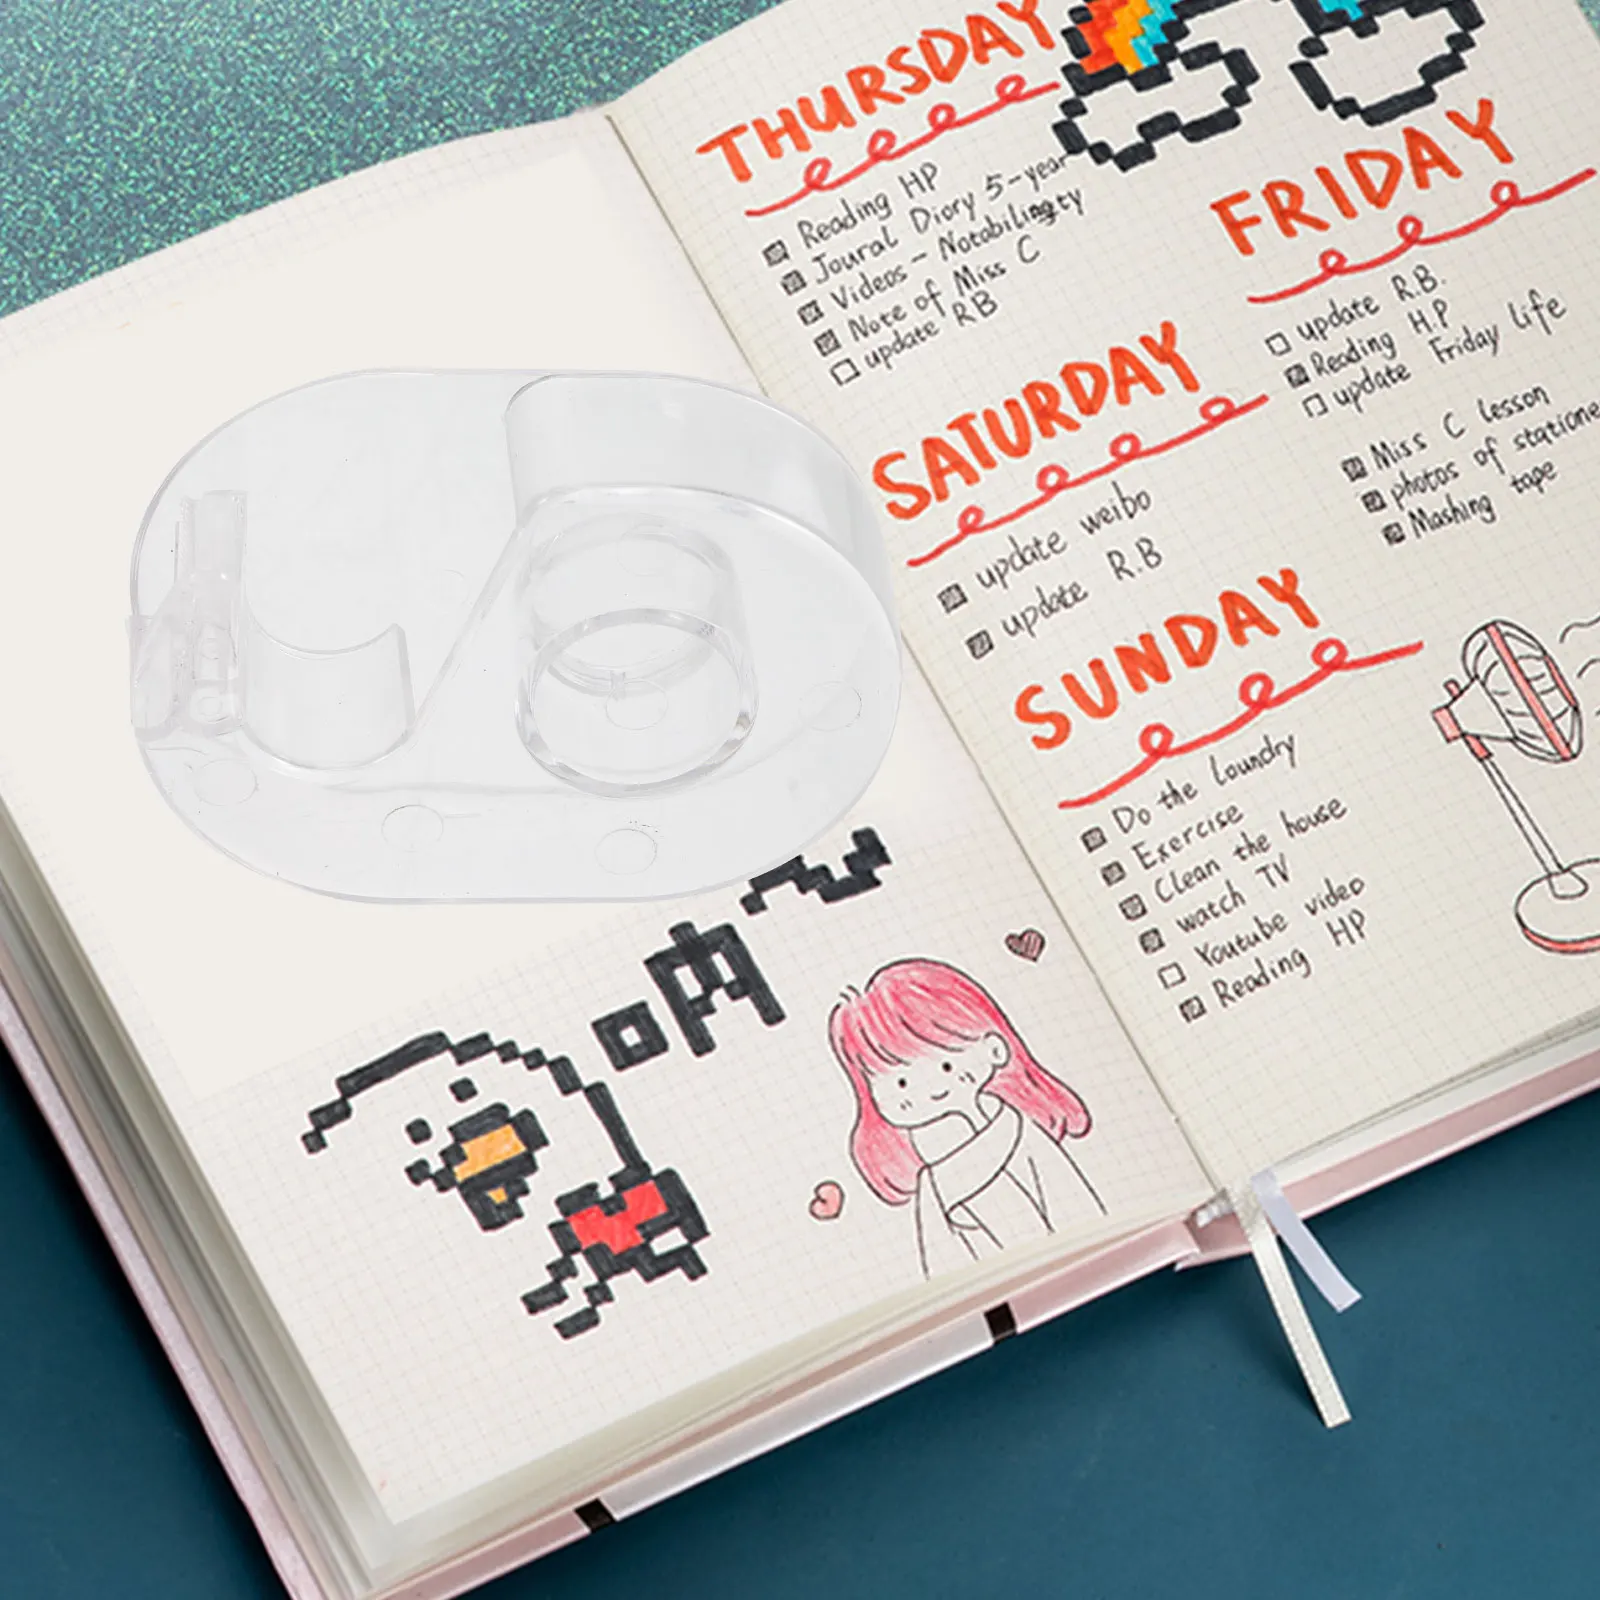 THURSDAY
Reading HP
Joural Diory 5-year
Videos - Notabilingty
Note of Miss C
update RB
FRIDAY
update R.B.
Reading H.P
update Friday life
Miss C lesson
photos of statione
Mashing tape
SATURDAY
update weibo
update R.B
SUNDAY
Do the Loundry
Exercise
Clean the house
watch TV
Youtube video
Reading HP